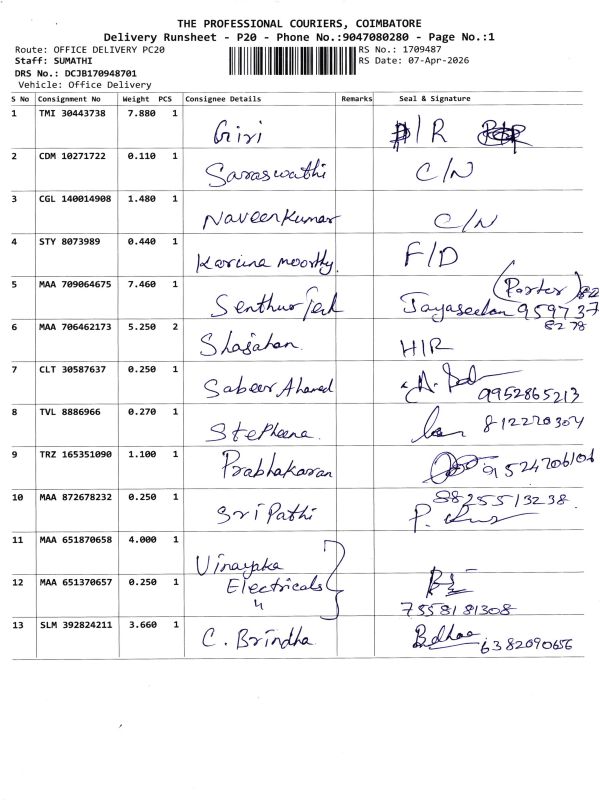 THE PROFESSIONAL COURIERS, COIMBATORE
Delivery Runsheet - P20 - Phone No.:9047080280 - Page No.:1
Route: OFFICE DELIVERY PC20 RS No.: 1709487
Staff: SUMATHI RS Date: 07-Apr-2026
DRS No.: DCJB170948701
Vehicle: Office Delivery
S No Consignment No Weight PCS Consignee Details Remarks Seal & Signature
1 TMI 30443738 7.880 1 Giri H/R
2 CDM 10271722 0.110 1 Saraswathi C/N
3 CGL 140014908 1.480 1 Naveenkumar C/N
4 STY 8073989 0.440 1 Karuna moorthy. F/D
5 MAA 709064675 7.460 1 Senthur Tech Jayaseelan (Porter)
6 MAA 706462173 5.250 2 Shajahan. H/R
7 CLT 30587637 0.250 1 Sabeer Ahamed 9952865213
8 TVL 8886966 0.270 1 Stepheena. 812220304
9 TRZ 165351090 1.100 1 Prabhakaran 9524706106
10 MAA 872678232 0.250 1 Sri Pathi 8825513238.
11 MAA 651870658 4.000 1 Vinayaka
12 MAA 651370657 0.250 1 Electricals
7558181308
13 SLM 392824211 3.660 1 C. Brindha 6382090656